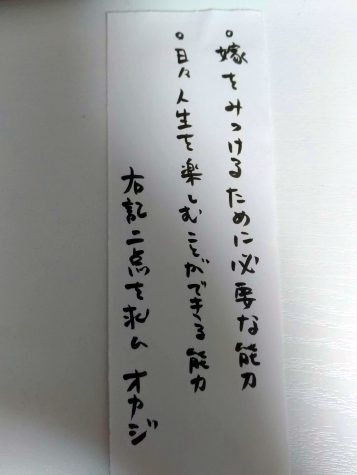 。嫁をみつけるために必要な能力
。日々人生を楽しむことができる能力
右記二点を求ム オカジ